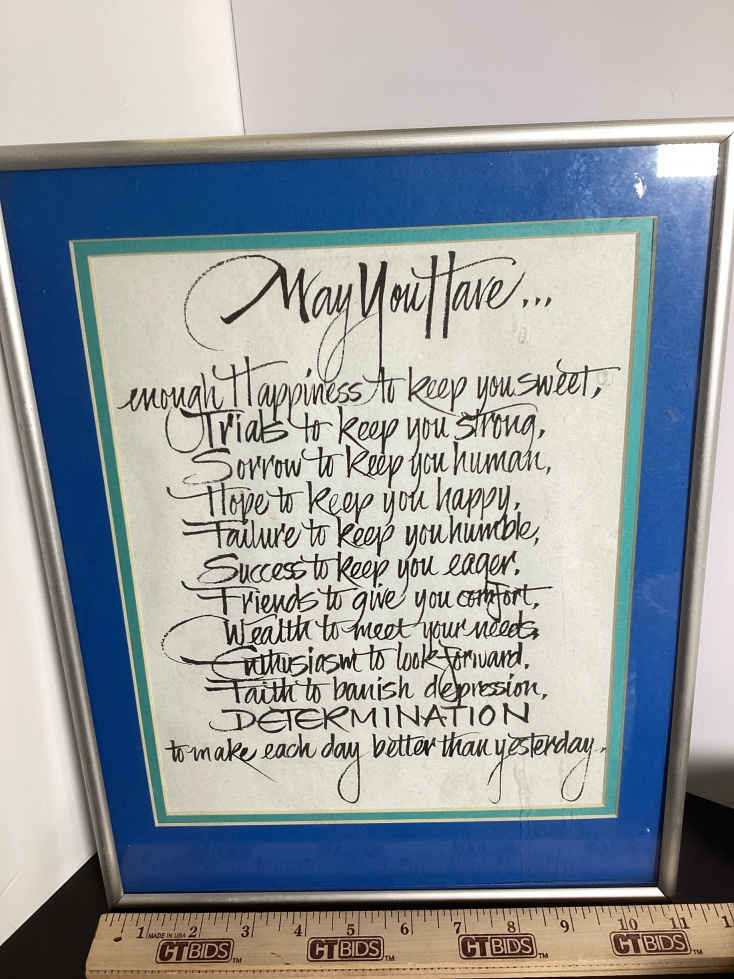 May You Have...
enough Happiness to keep you sweet,
Trials to keep you strong,
Sorrow to keep you human,
Hope to keep you happy,
Failure to keep you humble,
Success to keep you eager,
Friends to give you comfort,
Wealth to meet your needs,
Enthusiasm to look forward,
Faith to banish depression,
DETERMINATION
to make each day better than yesterday.
1 MADE IN USA 2 3 4 5 6 7 8 9 10 11 1
CTBIDS™ CTBIDS™ CTBIDS™ CTBIDS™